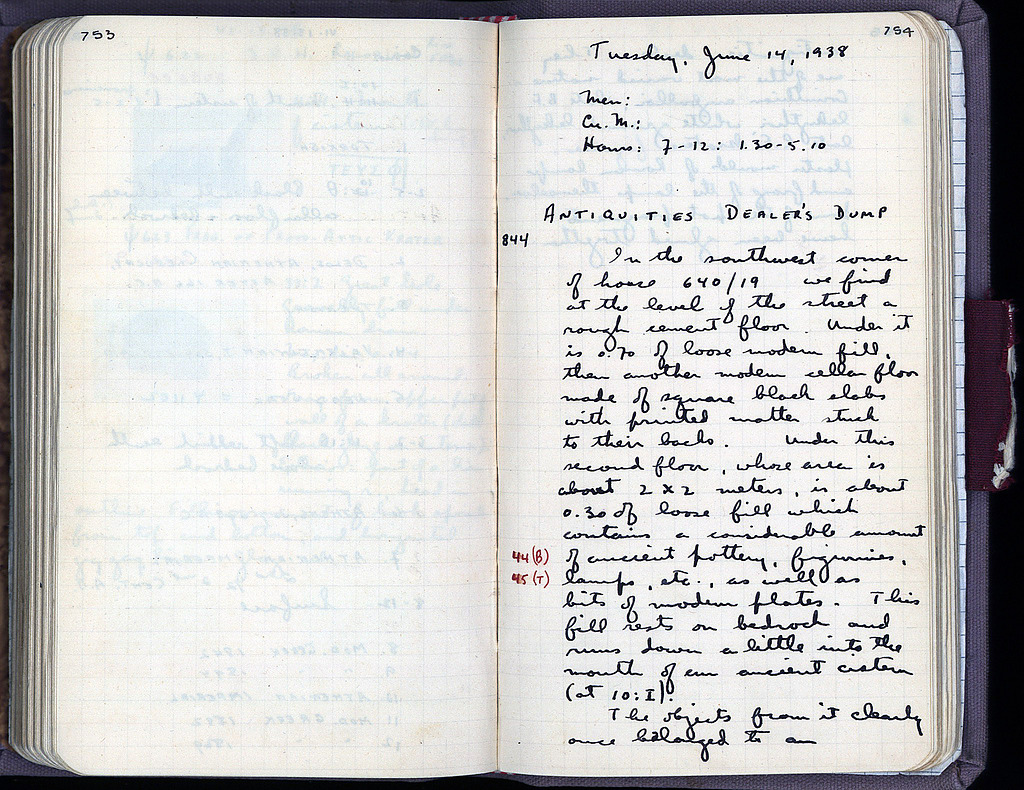 753
754
Tuesday, June 14, 1938
Men:
Cu. M.:
Hours: 7-12: 1.30-5.10
ANTIQUITIES DEALER'S DUMP
844
In the southwest corner
of house 640/19 we find
at the level of the street a
rough cement floor. Under it
is 0.70 of loose modern fill,
then another modern cellar floor
made of square black slabs
with printed matter stuck
to their backs. Under this
second floor, whose area is
about 2 x 2 meters, is about
0.30 of loose fill which
contains a considerable amount
44 (B) of ancient pottery, figurines,
45 (T) lamps, etc., as well as
bits of modern plates. This
fill rests on bedrock and
runs down a little into the
mouth of an ancient cistern
(at 10:I).
The objects from it clearly
once belonged to an